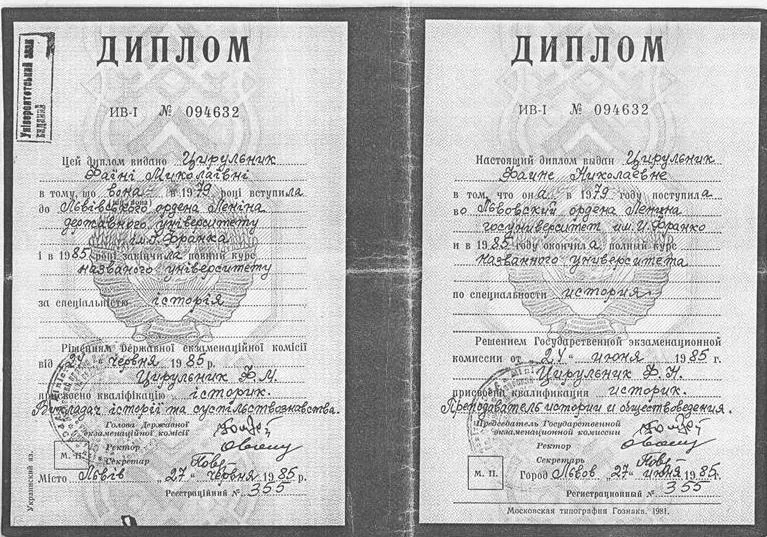 Університетський
виданий
ДИПЛОМ
ИВ-I № 094632
Цей диплом видано Цирульник
Фаїні Миколаївні
в тому, що вона в 1979 році вступила
до Львівського ордена Леніна
державного університету
ім. І. Франка
і в 1985 році закінчила повний курс
названого університету
за спеціальністю історія
Рішенням Державної екзаменаційної комісії
від „24“ червня 1985 р.
Цирульник Ф.М.
присвоєно кваліфікацію історик.
Викладач історії та суспільствознавства.
Голова Державної
екзаменаційної комісії
Ректор
Секретар
М. П.
Місто Львів „27“ червня 1985 р.
Реєстраційний №. 355
Украинский яз.
ДИПЛОМ
ИВ-I № 094632
Настоящий диплом выдан Цирульник
Фаине Николаевне
в том, что она в 1979 году поступила
во Львовский ордена Ленина
госуниверситет им. И. Франко
и в 1985 году окончила полный курс
названного университета
по специальности история
Решением Государственной экзаменационной
комиссии от „24“ июня 1985 г.
Цирульник Ф.Н.
присвоена квалификация историк.
Преподаватель истории и обществоведения.
Председатель Государственной
экзаменационной комиссии
Ректор
Секретарь
М. П.
Город Львов „27“ июня 1985 г.
Регистрационный №. 355
Московская типография Гознака. 1981.